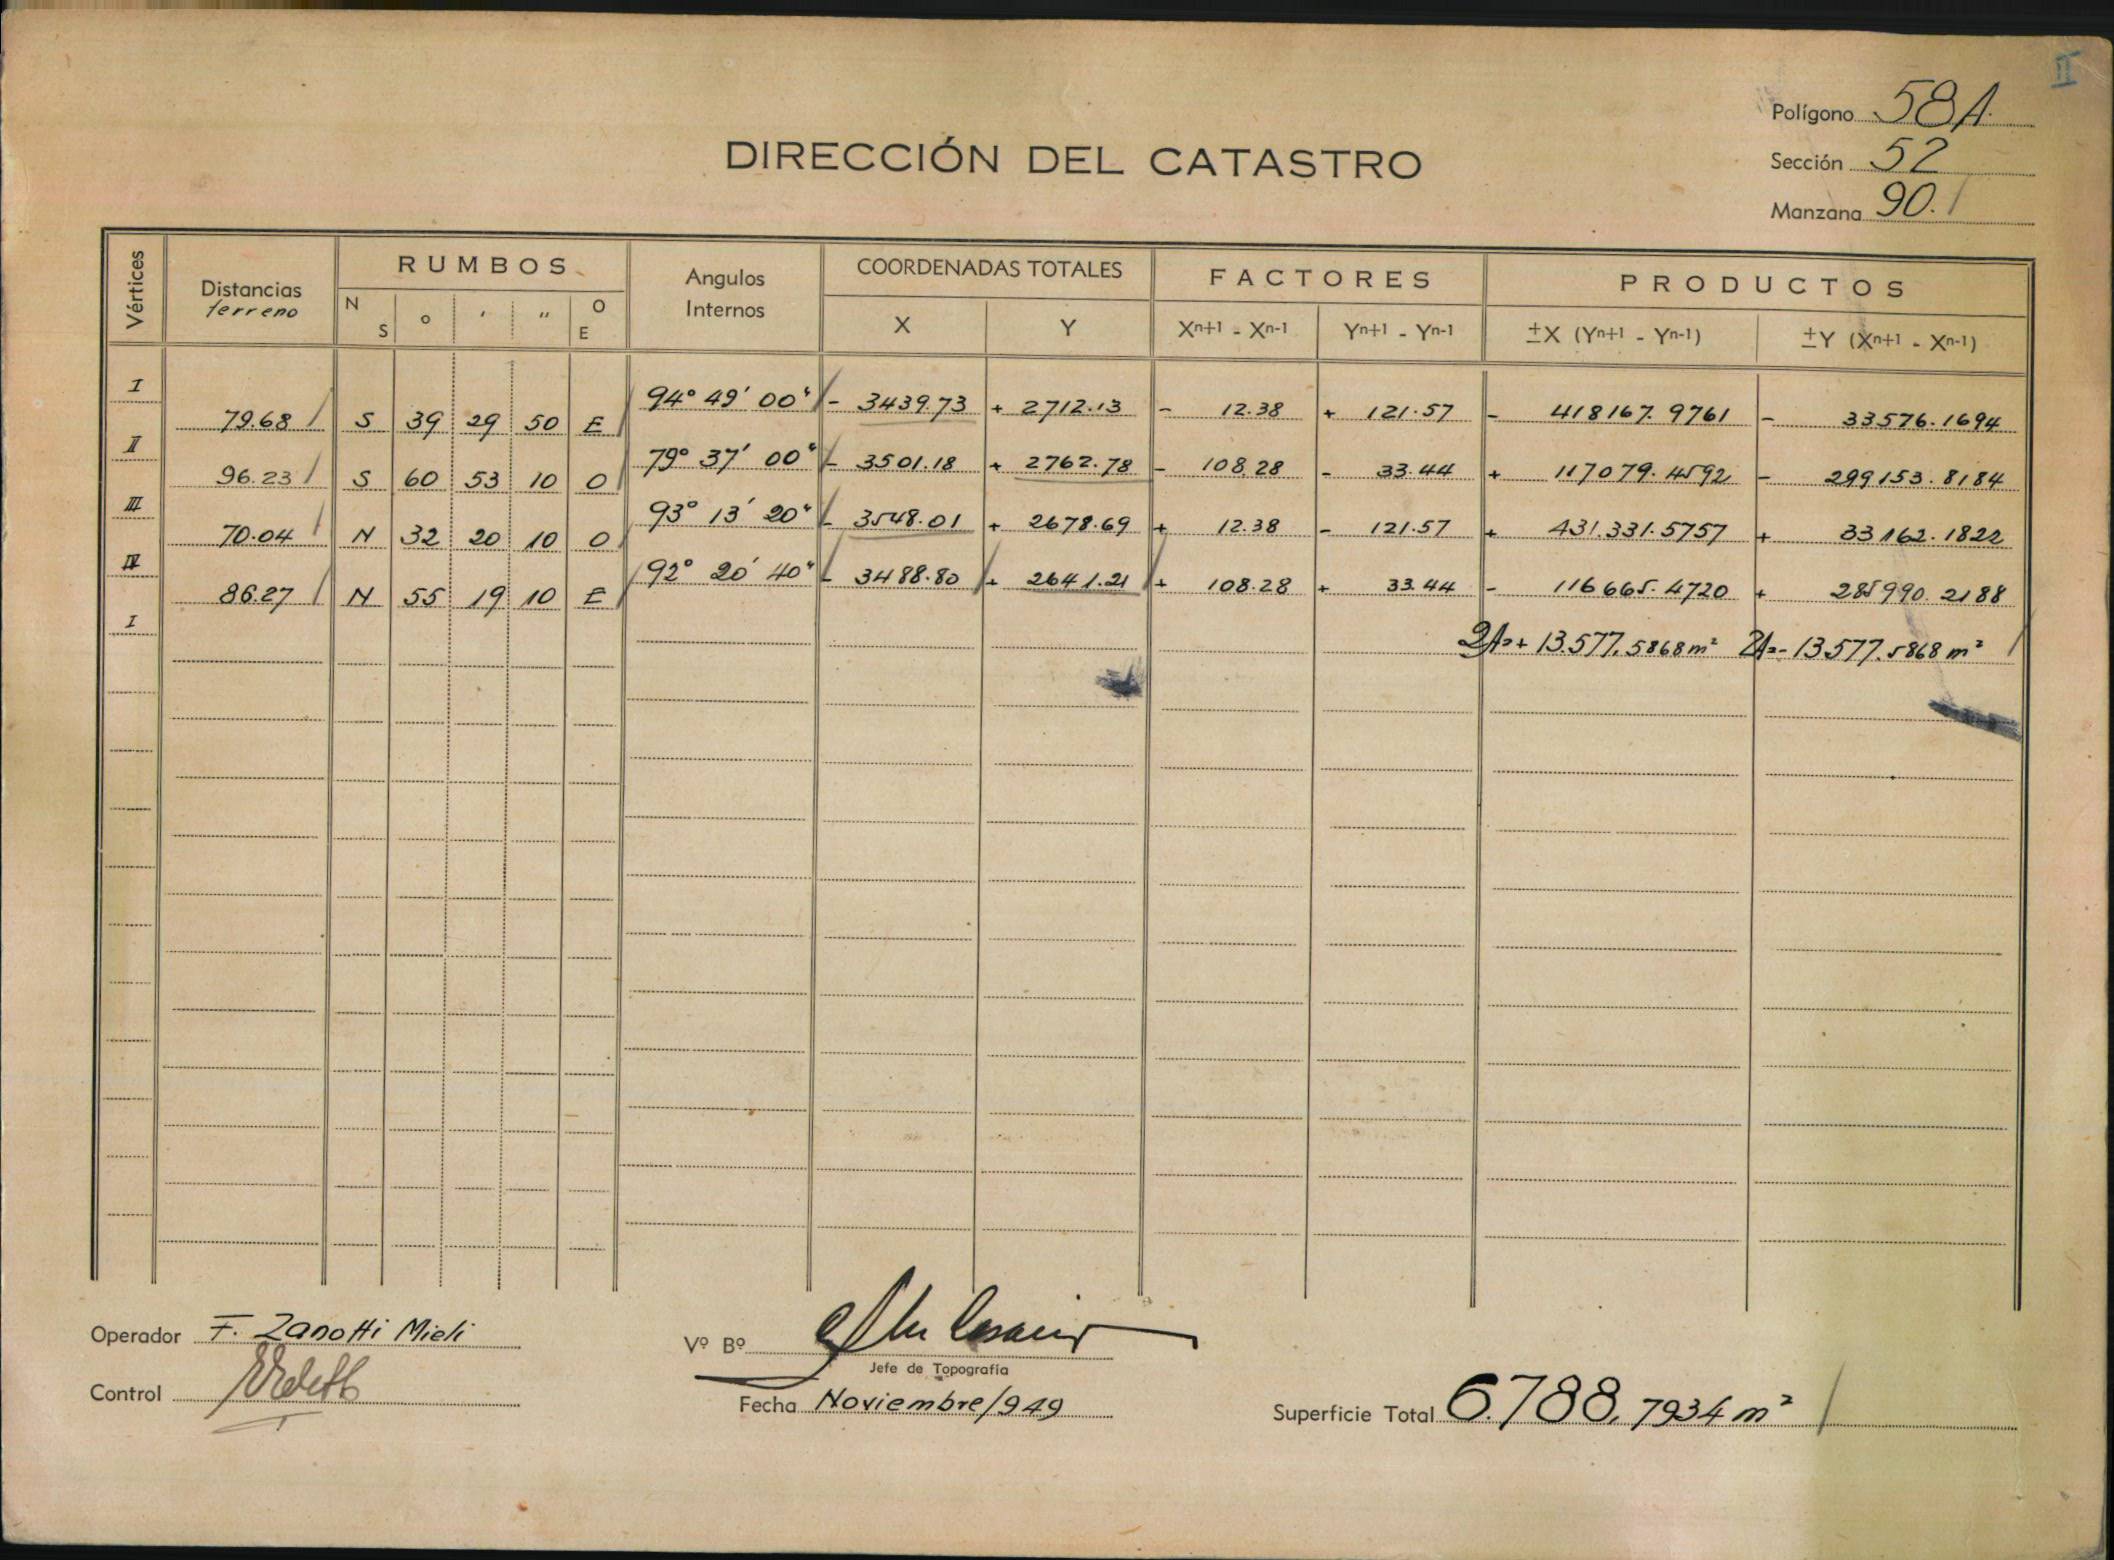 II
Polígono 58A.
Sección 52
Manzana 90.
DIRECCIÓN DEL CATASTRO
Vértices Distancias terreno RUMBOS N S ° ′ ″ O E Angulos Internos COORDENADAS TOTALES X Y FACTORES Xn+1 - Xn-1 Yn+1 - Yn-1 PRODUCTOS ±X (Yn+1 - Yn-1) ±Y (Xn+1 - Xn-1)
I 94° 49′ 00″ - 3439.73 + 2712.13 - 12.38 + 121.57 - 418167.9761 - 33576.1694
79.68 S 39 29 50 E
II 79° 37′ 00″ - 3501.18 + 2762.78 - 108.28 - 33.44 + 117079.4592 - 299153.8184
96.23 S 60 53 10 O
III 93° 13′ 20″ - 3548.01 + 2678.69 + 12.38 - 121.57 + 431.331.5757 + 33162.1822
70.04 N 32 20 10 O
IV 92° 20′ 40″ - 3488.80 + 2641.21 + 108.28 + 33.44 - 116665.4720 + 285990.2188
86.27 N 55 19 10 E
I
2A=+ 13.577,5868 m² 2A=- 13.577,5868 m²
Operador F. Zanotti Mieli
Control
Vº Bº
Jefe de Topografía
Fecha Noviembre/949
Superficie Total 6.788,7934 m²